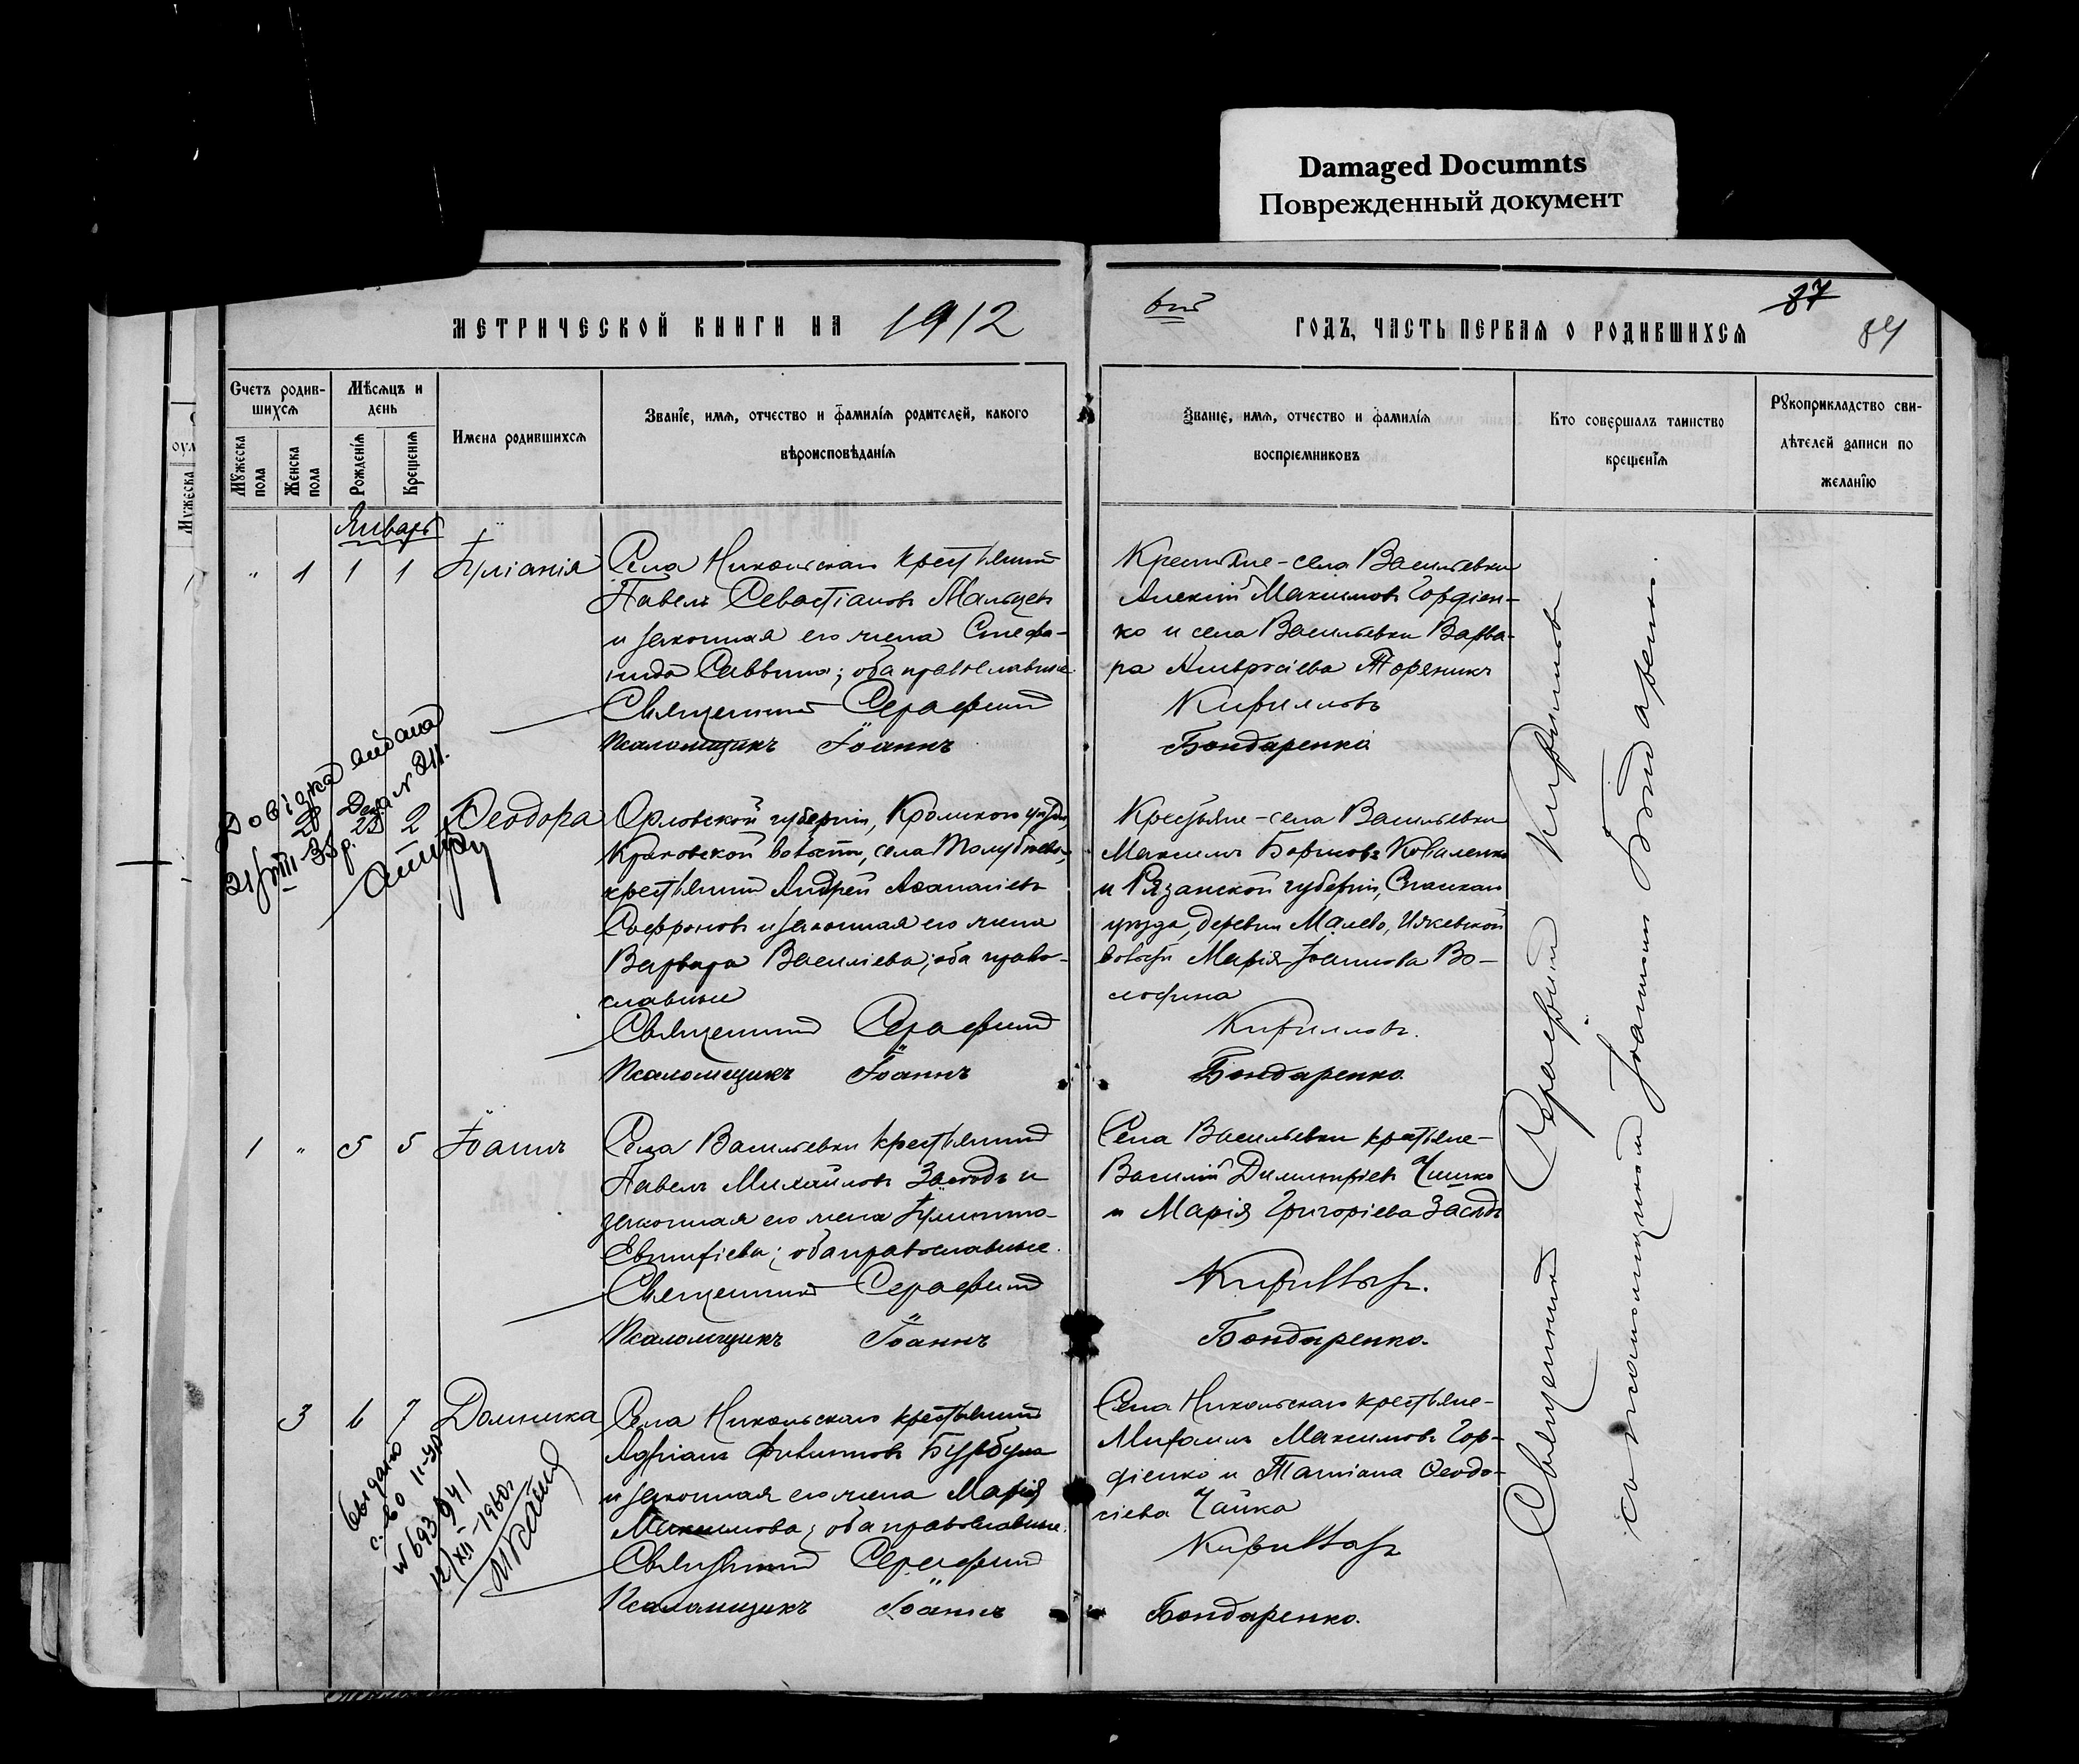 Damaged Documnts
Поврежденный документ
МЕТРИЧЕСКОЙ КНИГИ НА 1912
вый ГОДЪ, ЧАСТЬ ПЕРВАЯ О РОДИВШИХСЯ
87
84
Счетъ родив-
шихся
Мѣсяцъ и
день
Мужеска пола
Женска пола
Рожденія
Крещенія
Имена родившихся
Званіе, имя, отчество и фамилія родителей, какого
вѣроисповѣданія
Званіе, имя, отчество и фамилія
воспріемниковъ
Кто совершалъ таинство
крещенія
Рукоприкладство сви-
дѣтелей записи по
желанію
Январь
" 1 1 1 Іуліанія
Села Никольскаго крестьянинъ
Павелъ Севастіановъ Мальцевъ
и законная его жена Стефа-
нида Саввина; оба православные
Священникъ Серафимъ
Псаломщикъ Іоаннъ
Крестьяне - села Васильевки
Алексій Максимовъ Гордіен-
ко и села Васильевки Варва-
ра Амвросіева Тореникъ
Кирилловъ
Бондаренко
Довідка видана
21/VIII-35 р. № 211.
2 Дек. 23 2 Ѳеодора
Орловской губерніи, Кромского уѣзда,
волости, села
крестьянинъ Андрей Аѳанасіевъ
Софроновъ и законная его жена
Варвара Василіева; оба право-
славные
Священникъ Серафимъ
Псаломщикъ Іоаннъ
Крестьяне - села Васильевки
Максимъ Борисовъ Коваленко
и Рязанской губерніи, Спаскаго
уѣзда, деревни Малево, Ижевской
волости Марія Іоаннова Во-
лофина
Кирилловъ.
Бондаренко.
1 " 5 5 Іоаннъ
Села Васильевки крестьянинъ
Павелъ Михайловъ Засядь и
законная его жена Іулитта
Евтихіева; оба православные.
Священникъ Серафимъ
Псаломщикъ Іоаннъ
Села Васильевки крестьяне -
Василій Димитріевъ Чишко
и Марія Григоріева Засядь
Кирилловъ.
Бондаренко.
3 6 7 Домника
Села Никольскаго крестьянинъ
Адріанъ Филипповъ Бурбула
и законная его жена Марія
Максимова; оба православные.
Священникъ Серафимъ
Псаломщикъ Іоаннъ
Села Никольскаго крестьяне -
Михаилъ Максимовъ Гор-
діенко и Татіана Ѳеодо-
сіева Чайка
Кирилловъ
Бондаренко.
Выдано
с-во II-
№ 693941
12/XII-1960 г.
Священникъ Серафимъ Кирилловъ
съ псаломщикомъ Іоанномъ Бондаренко.